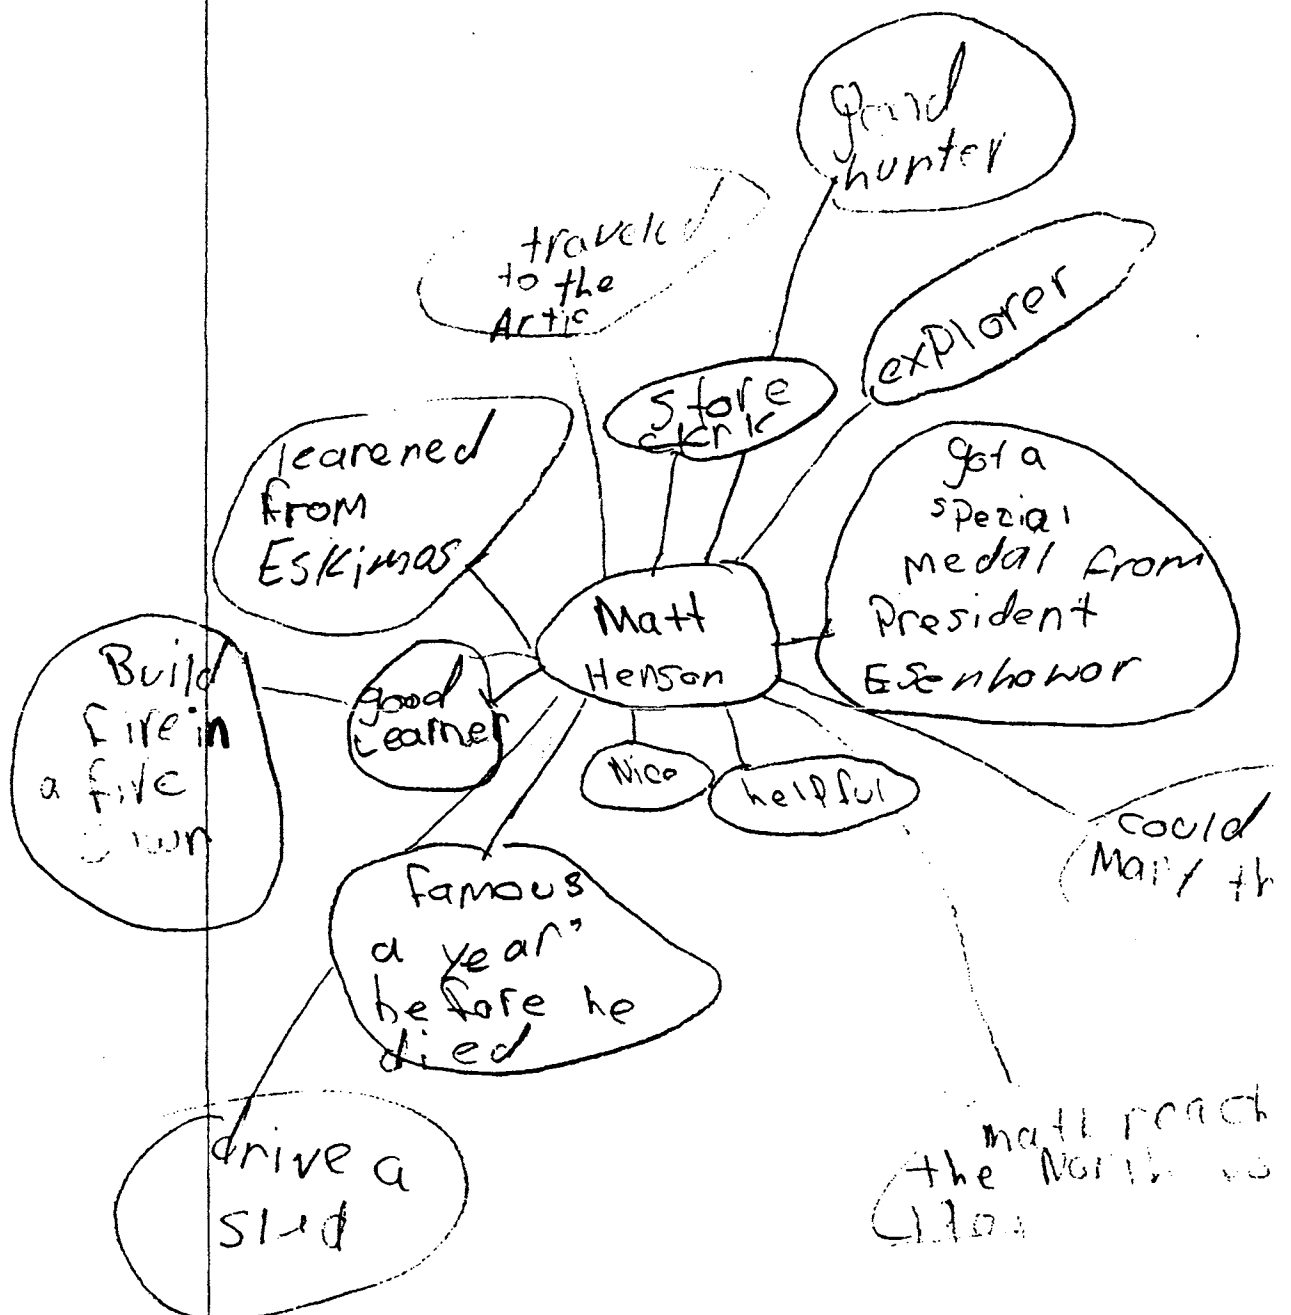 good
hunter
traveled
to the
Artic
explorer
store
clerk
learened
from
Eskimos
got a
spezial
medal from
President
Esenhowor
Matt
Henson
Build
fire in
a five
good
Learner
Nice
helpful
could
famous
a year
before he
died
drive a
sled
matt reach
the North